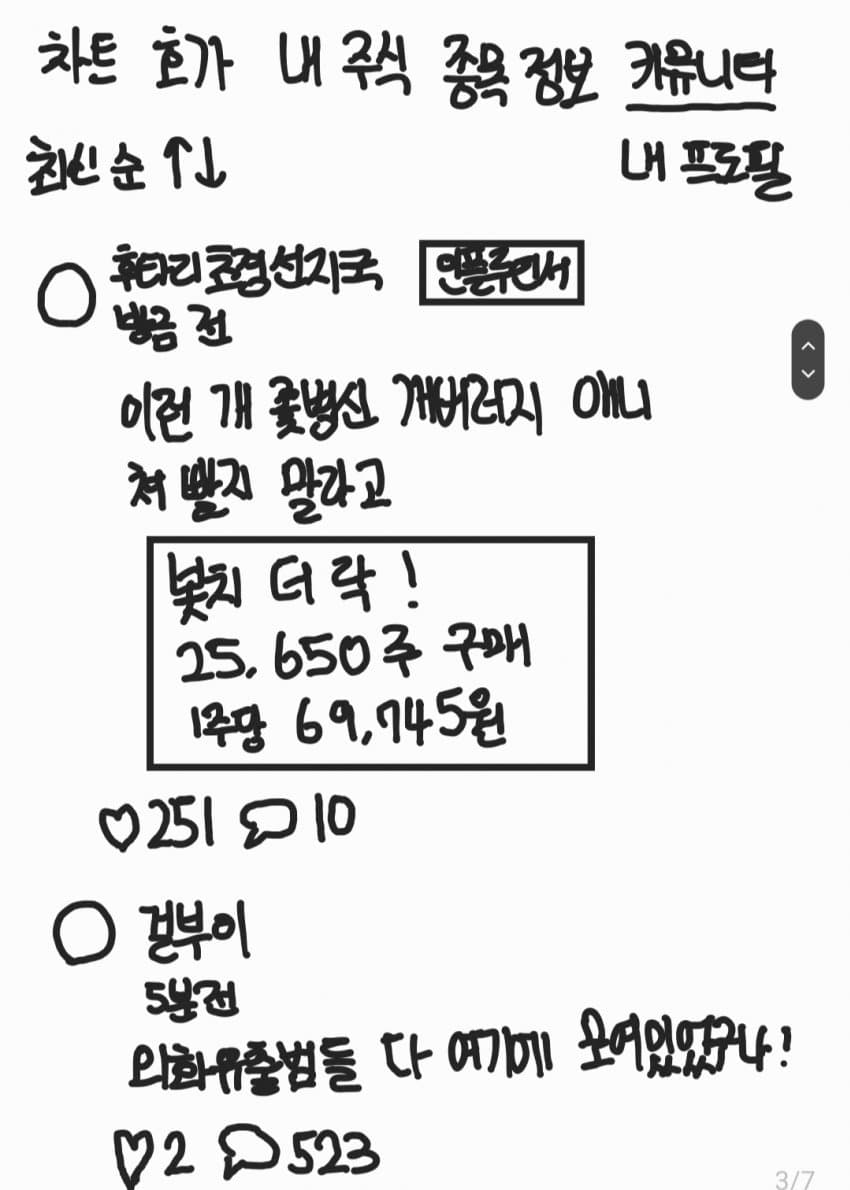 차트 호가 내 주식 종목정보 커뮤니티
최신순↑↓ 내 프로필
후타리초경선지국 인플루언서
방금 전
이런 개 좆병신 개버러지 애니
쳐 빨지 말라고
봋치 더 락!
25.650주 구매
1주당 69,745원
♡251 10
걸부이
5분전
외화유출범들 다 여기에 모여있었구나!
♡2 523
3/7